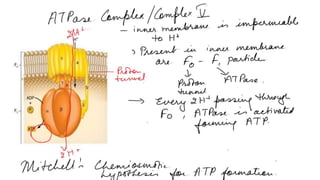 ATPase Complex/Complex V
2H+
- inner membrane is impermeable
to H+
> Present in inner membrane
are Fo - F1 particle
Proton
tunnel
Proton
tunnel
ATPase.
→ Every 2H+ passing through
Fo, ATPase is activated
forming ATP.
ADP
Pi
2H+
Mitchell's Chemiosmotic
hypothesis for ATP formation.